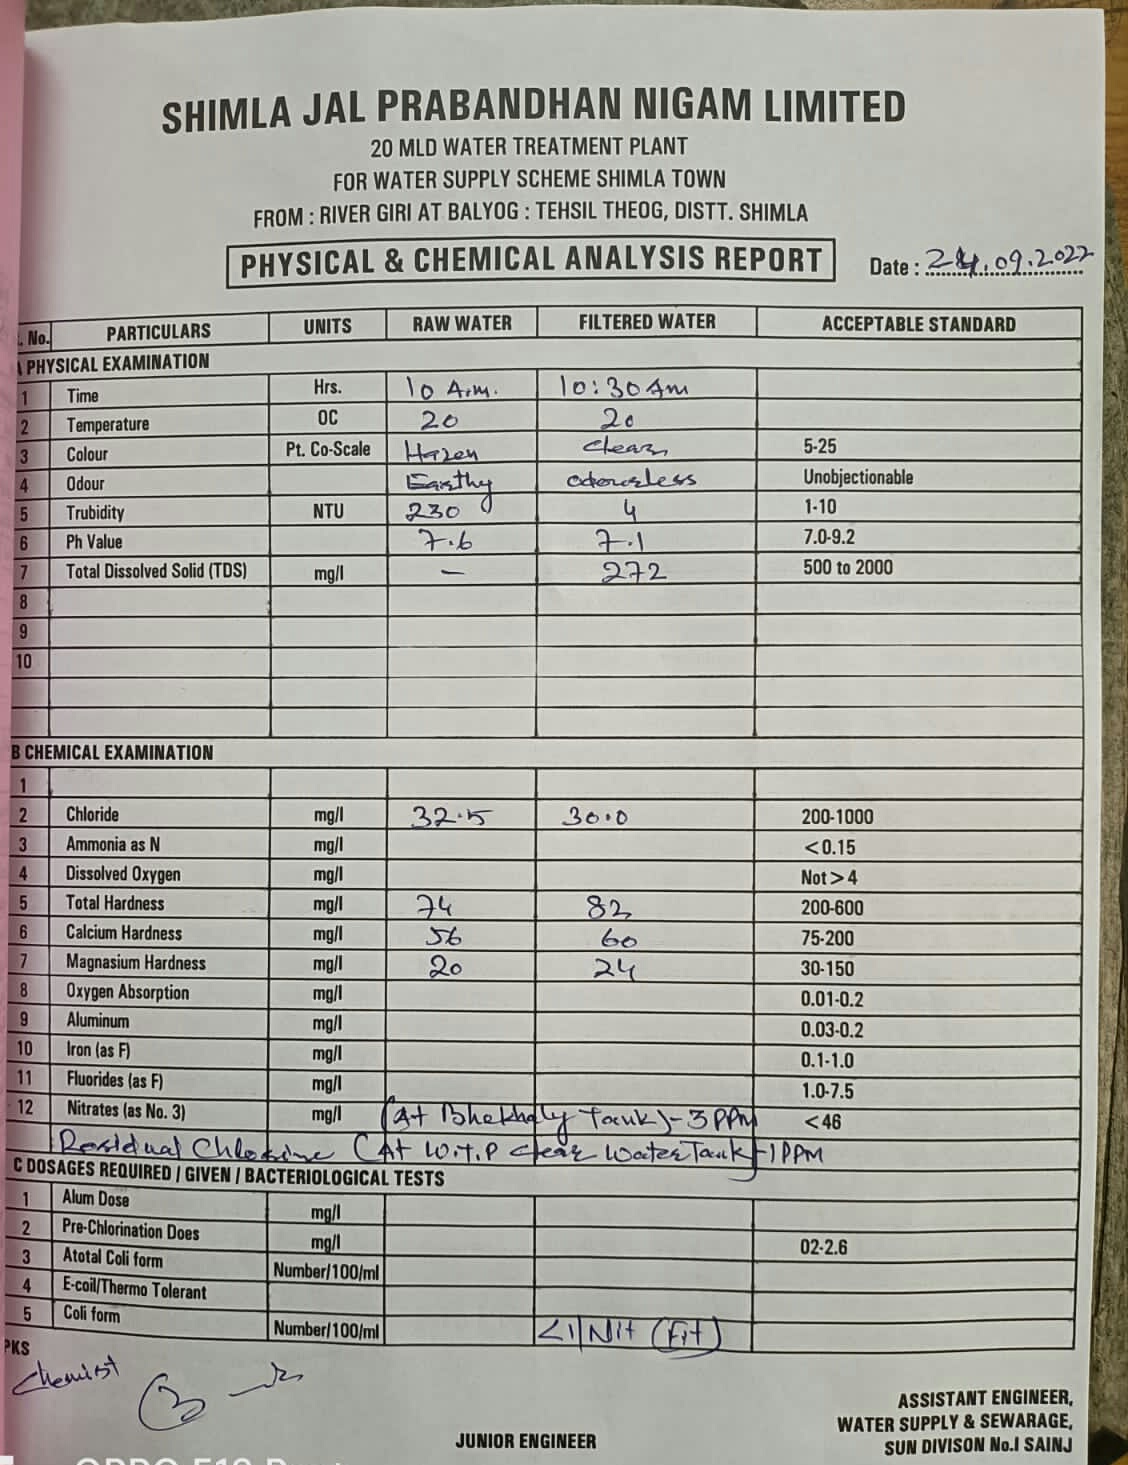 SHIMLA JAL PRABANDHAN NIGAM LIMITED
20 MLD WATER TREATMENT PLANT
FOR WATER SUPPLY SCHEME SHIMLA TOWN
FROM : RIVER GIRI AT BALYOG : TEHSIL THEOG, DISTT. SHIMLA
PHYSICAL & CHEMICAL ANALYSIS REPORT Date : 24.09.2022
. No. PARTICULARS UNITS RAW WATER FILTERED WATER ACCEPTABLE STANDARD
A PHYSICAL EXAMINATION
1 Time Hrs. 10 A.m. 10:30 Am
2 Temperature OC 20 20
3 Colour Pt. Co-Scale Hazen clear 5-25
4 Odour Earthy odourless Unobjectionable
5 Trubidity NTU 230 4 1-10
6 Ph Value 7.6 7.1 7.0-9.2
7 Total Dissolved Solid (TDS) mg/l — 272 500 to 2000
8
9
10
B CHEMICAL EXAMINATION
1
2 Chloride mg/l 32.5 30.0 200-1000
3 Ammonia as N mg/l <0.15
4 Dissolved Oxygen mg/l Not>4
5 Total Hardness mg/l 74 82 200-600
6 Calcium Hardness mg/l 56 60 75-200
7 Magnasium Hardness mg/l 20 24 30-150
8 Oxygen Absorption mg/l 0.01-0.2
9 Aluminum mg/l 0.03-0.2
10 Iron (as F) mg/l 0.1-1.0
11 Fluorides (as F) mg/l 1.0-7.5
12 Nitrates (as No. 3) mg/l (At Bhekhaly Tank)-3 PPM <46
Residual Chlorine (At W.T.P clear Water Tank)-1 PPM
C DOSAGES REQUIRED / GIVEN / BACTERIOLOGICAL TESTS
1 Alum Dose mg/l
2 Pre-Chlorination Does mg/l 02-2.6
3 Atotal Coli form Number/100/ml
4 E-coil/Thermo Tolerant
5 Coli form Number/100/ml <1/Nil (Fit)
PKS
Chemist
ASSISTANT ENGINEER,
WATER SUPPLY & SEWARAGE,
JUNIOR ENGINEER
SUN DIVISON No.I SAINJ